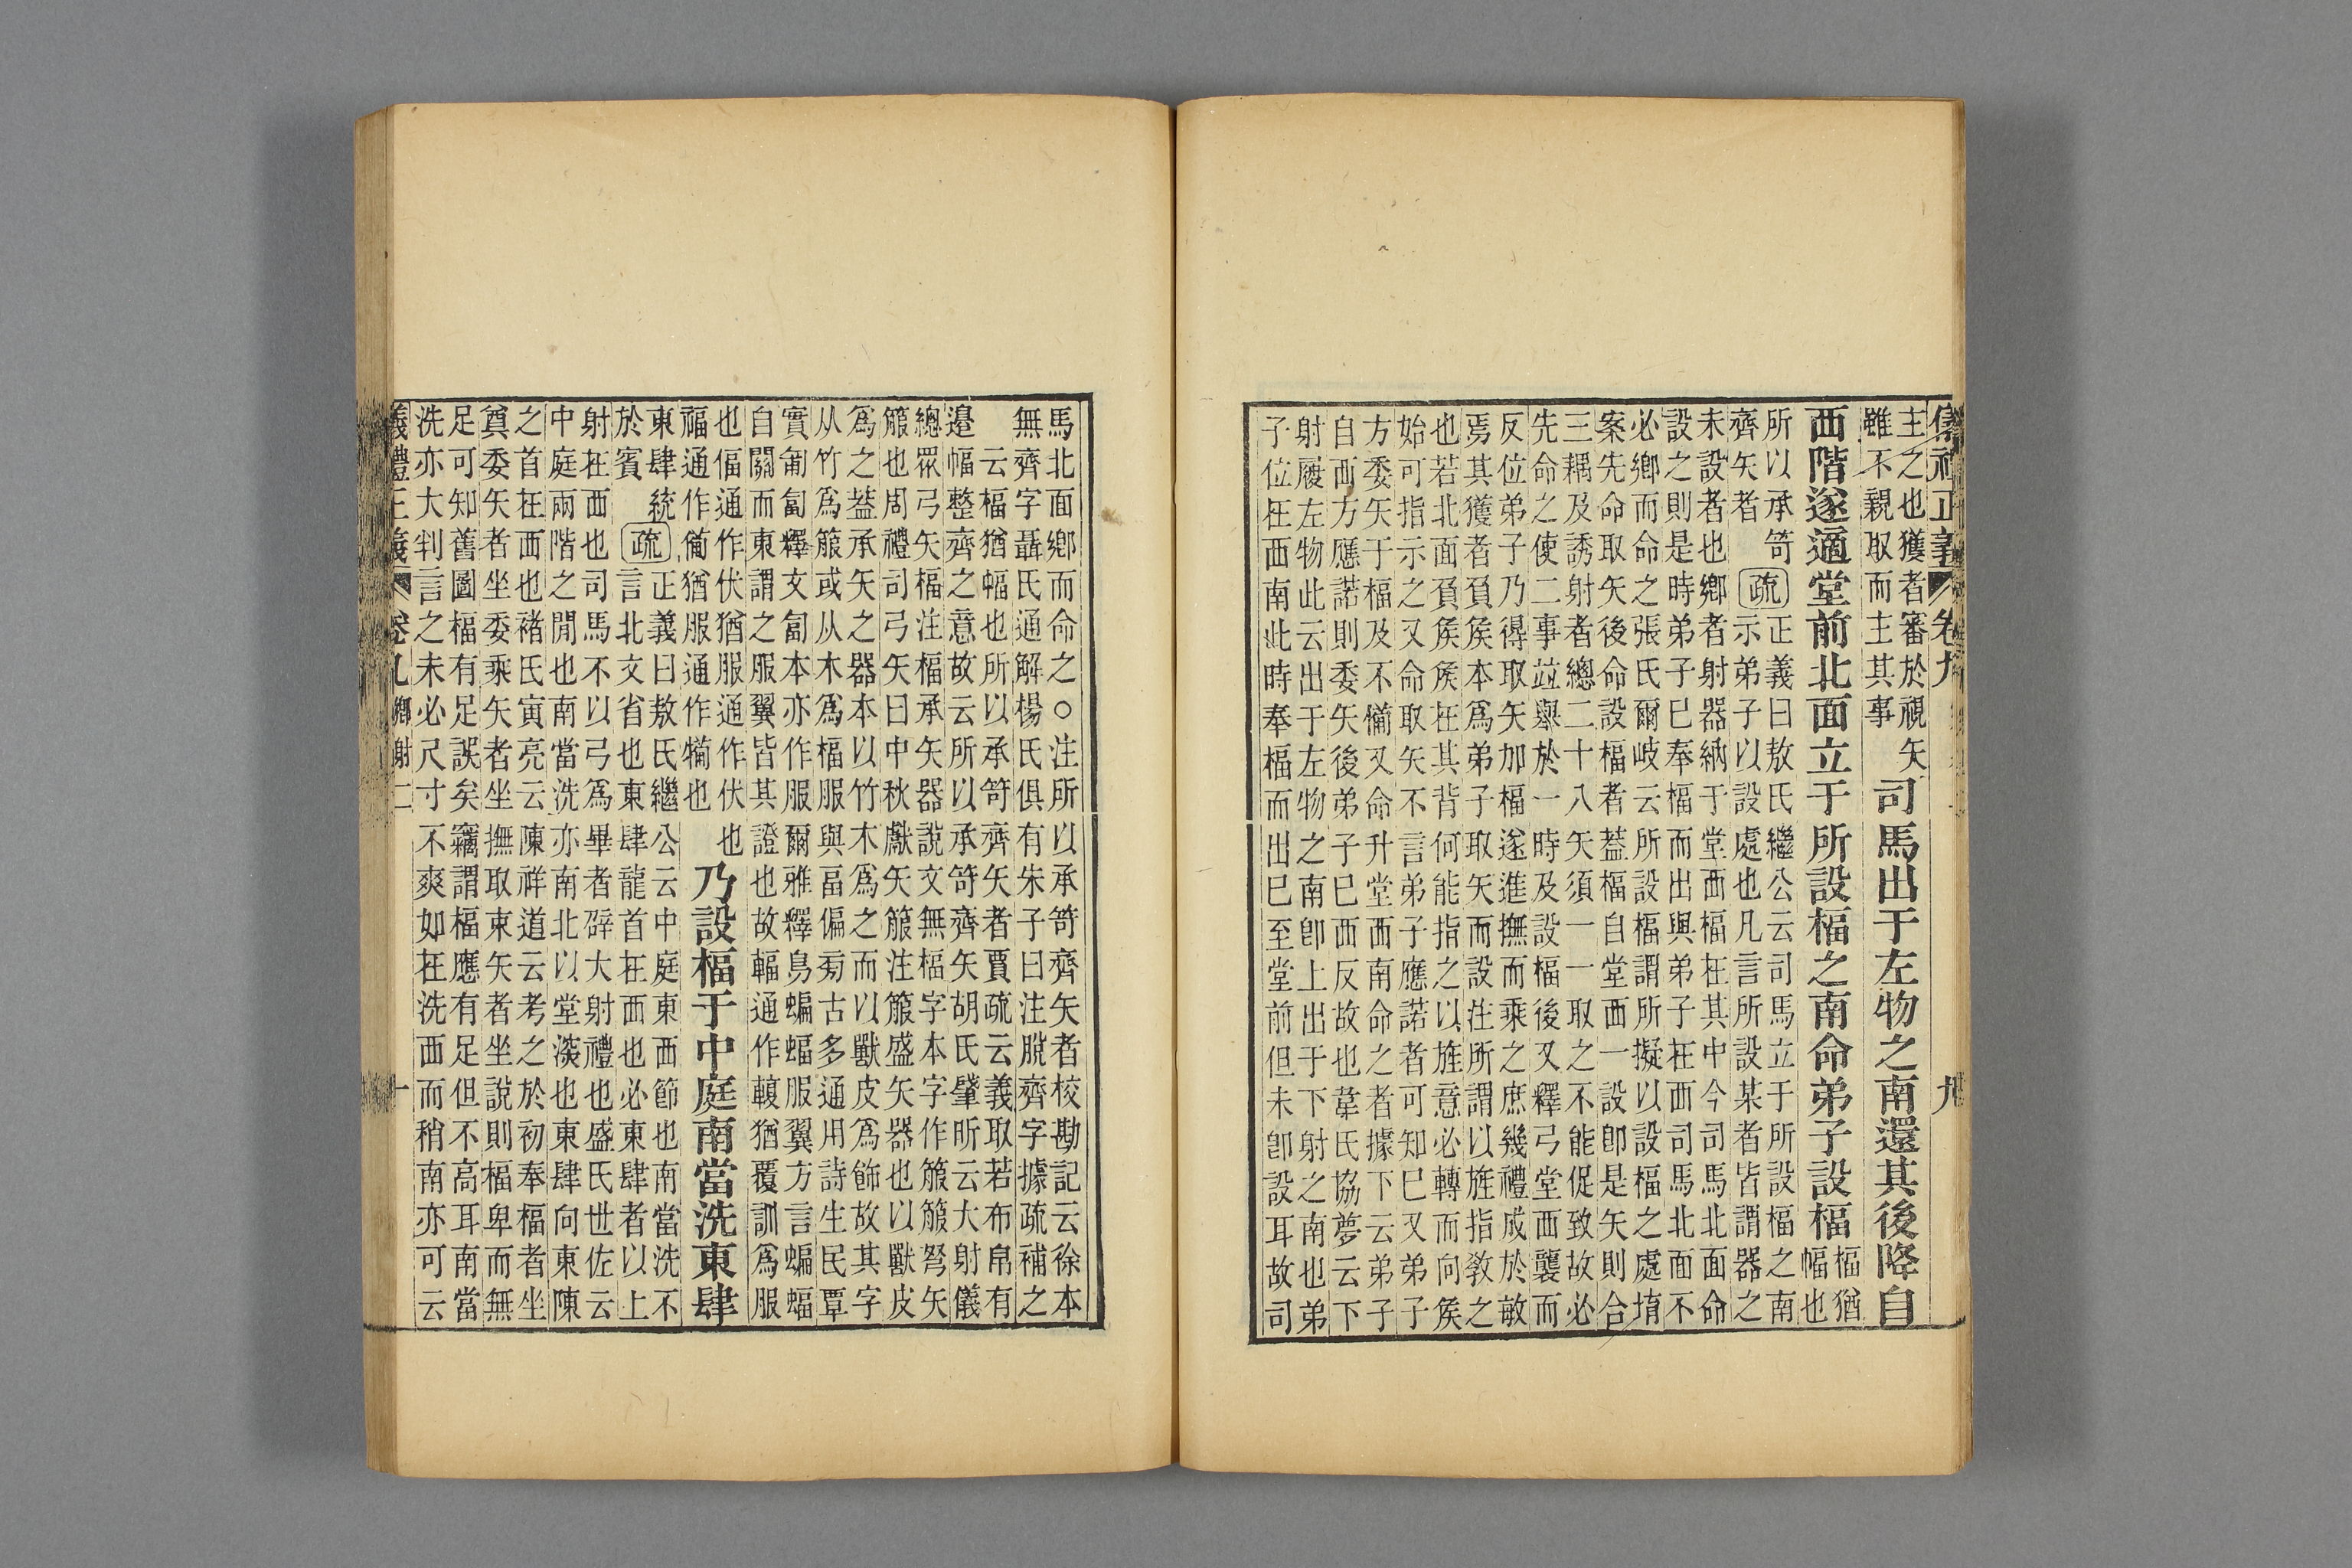 儀禮正義 卷九 九
主之也獲者審於視矢
雖不親取而主其事
司馬出于左物之南還其後降自
西階遂適堂前北面立于所設楅之南命弟子設楅
楅猶
幅也
所以承笴
齊矢者
疏
正義曰敖氏繼公云司馬立于所設楅之南
示弟子以設處也凡言所設某者皆謂器之
未設者也鄉者射器納于堂西楅在其中今司馬北面命
設之則是時弟子已奉楅而出與弟子在西司馬北面不
必鄉而命之張氏爾岐云所設楅謂所擬以設楅之處堉
案先命取矢後命設楅者葢楅自堂西一設卽是矢則合
三耦及誘射者總二十八矢須一一取之不能促致故必
先命之使二事竝舉於一時及設楅後又釋弓堂西襲而
反位弟子乃得取矢加楅遂進撫而乘之庶幾禮成於敏
焉其獲者負矦本爲弟子取矢而設注所謂以旌指敎之
也若北面負矦矦在其背何能指之以旌意必轉而向矦
始可指示之又命取矢不言弟子應諾者可知已又弟子
方委矢于楅及不備又命升堂西南命之者據下云弟子
自西方應諾則委矢後弟子已西反故也韋氏協夢云下
射履左物此云出于左物之南卽上出于下射之南也弟
子位在西南此時奉楅而出已至堂前但未卽設耳故司
馬北面鄉而命之○注所以承笴齊矢者校勘記云徐本
無齊字聶氏通解楊氏俱有朱子曰注脫齊字據疏補之
云楅猶幅也所以承笴齊矢者賈疏云義取若布帛有
邉幅整齊之意故云所以承笴齊矢胡氏肇昕云大射儀
總眾弓矢楅注楅承矢器說文無楅字本字作箙箙弩矢
箙也周禮司弓矢曰中秋獻矢箙注箙盛矢器也以獸皮
爲之葢承矢之器本以竹木爲之而以獸皮爲飾故其字
从竹爲箙或从木爲楅服與畐偏旁古多通用詩生民覃
實匍匐釋文匐本亦作服爾雅釋鳥蝙蝠服翼方言蝙蝠
自關而東謂之服翼皆其證也故輻通作猶覆訓爲服
也偪通作伏猶服通作伏也
福通作葡猶服通作犕也
乃設楅于中庭南當洗東肆
東肆統
於賓
疏
正義曰敖氏繼公云中庭東西節也南當洗不
言北文省也東肆龍首在西也必東肆者以上
射在西也司馬不以弓爲畢者辟大射禮也盛氏世佐云
中庭兩階之閒也南當洗亦南北以堂深也東肆向東陳
之首在西也褚氏寅亮云陳祥道云考之於初奉楅者坐
奠委矢者坐委乘矢者坐撫取東矢者坐說則楅卑而無
足可知舊圖楅有足誤矣竊謂楅應有足但不高耳南當
洗亦大判言之未必尺寸不爽如在洗西而稍南亦可云
儀禮正義 卷九鄉射二 十